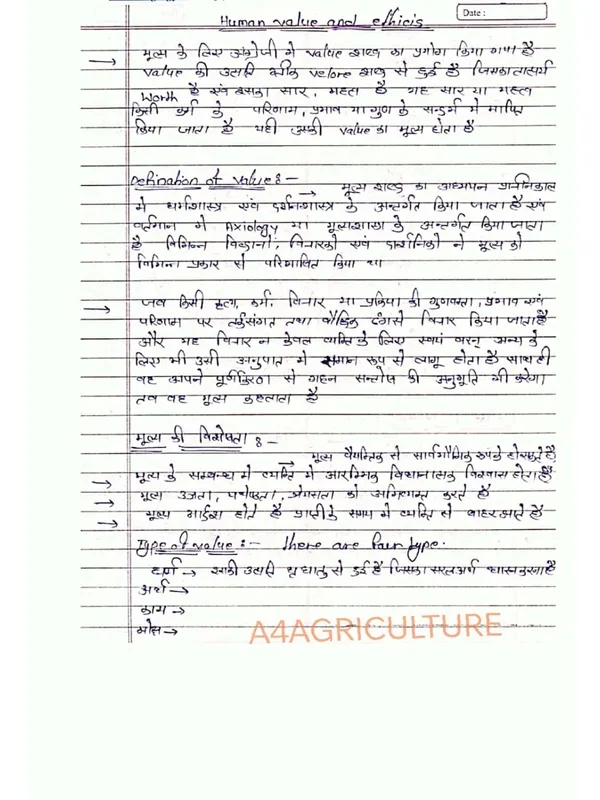 Date :
Human value and ethicis
→ मूल्य के लिए अंग्रेजी मे value शब्द का प्रयोग किया गया है
value की उत्पत्ति ग्रीक velore शब्द से हुई है जिसका तात्पर्य
worth है एवं इसका सार, महत्व है यह सार या महत्व
किसी कर्म के परिणाम, प्रभाव या गुण के सन्दर्भ में मापित
किया जाता है यही उसकी value का मूल्य होता है
Defination of value :-
→ मूल्य शब्द का अध्ययन प्राचीनकाल
मे धर्मशास्त्र एवं दर्शनशास्त्र के अन्तर्गत किया जाता है एवं
वर्तमान मे Axiology या मूल्यशास्त्र के अन्तर्गत किया जाता
है विभिन्न विद्वानों, विचारको एवं दार्शनिको ने मूल्य को
विभिन्न प्रकार से परिभाषित किया था
→ जब किसी कर्म, विचार या प्रक्रिया की गुणवत्ता, प्रभाव एवं
परिणाम पर तर्कसंगत तथा बौद्धिक ढंग से विचार किया जाता है
और यह विचार न केवल व्यक्ति के लिए स्वयं वरन् अन्य के
लिए भी उसी अनुपात मे समान रूप से लागू होता है साथ ही
वह अपने पूर्णकिरण से गहन सन्तोष की अनुभूति भी करेगा
तब वह मूल्य कहलाता है
मूल्य की विशेषता :-
→ मूल्य वैयक्तिक से सार्वभौमिक रूप के हो सकते है
→ मूल्य के सम्बन्ध मे व्यक्ति मे आरम्भिक विश्वास होता है
→ मूल्य उग्रता, को अभिव्यक्त करते है
→ मूल्य आईडिया होते है प्राप्ति के समय मे व्यक्ति से बाहर आते है
Type of value :- there are four type.
धर्म → इसकी उत्पत्ति धृ धातु से हुई है जिसका सरल अर्थ धारण करना है
अर्थ →
काम →
मोक्ष →
A4AGRICULTURE